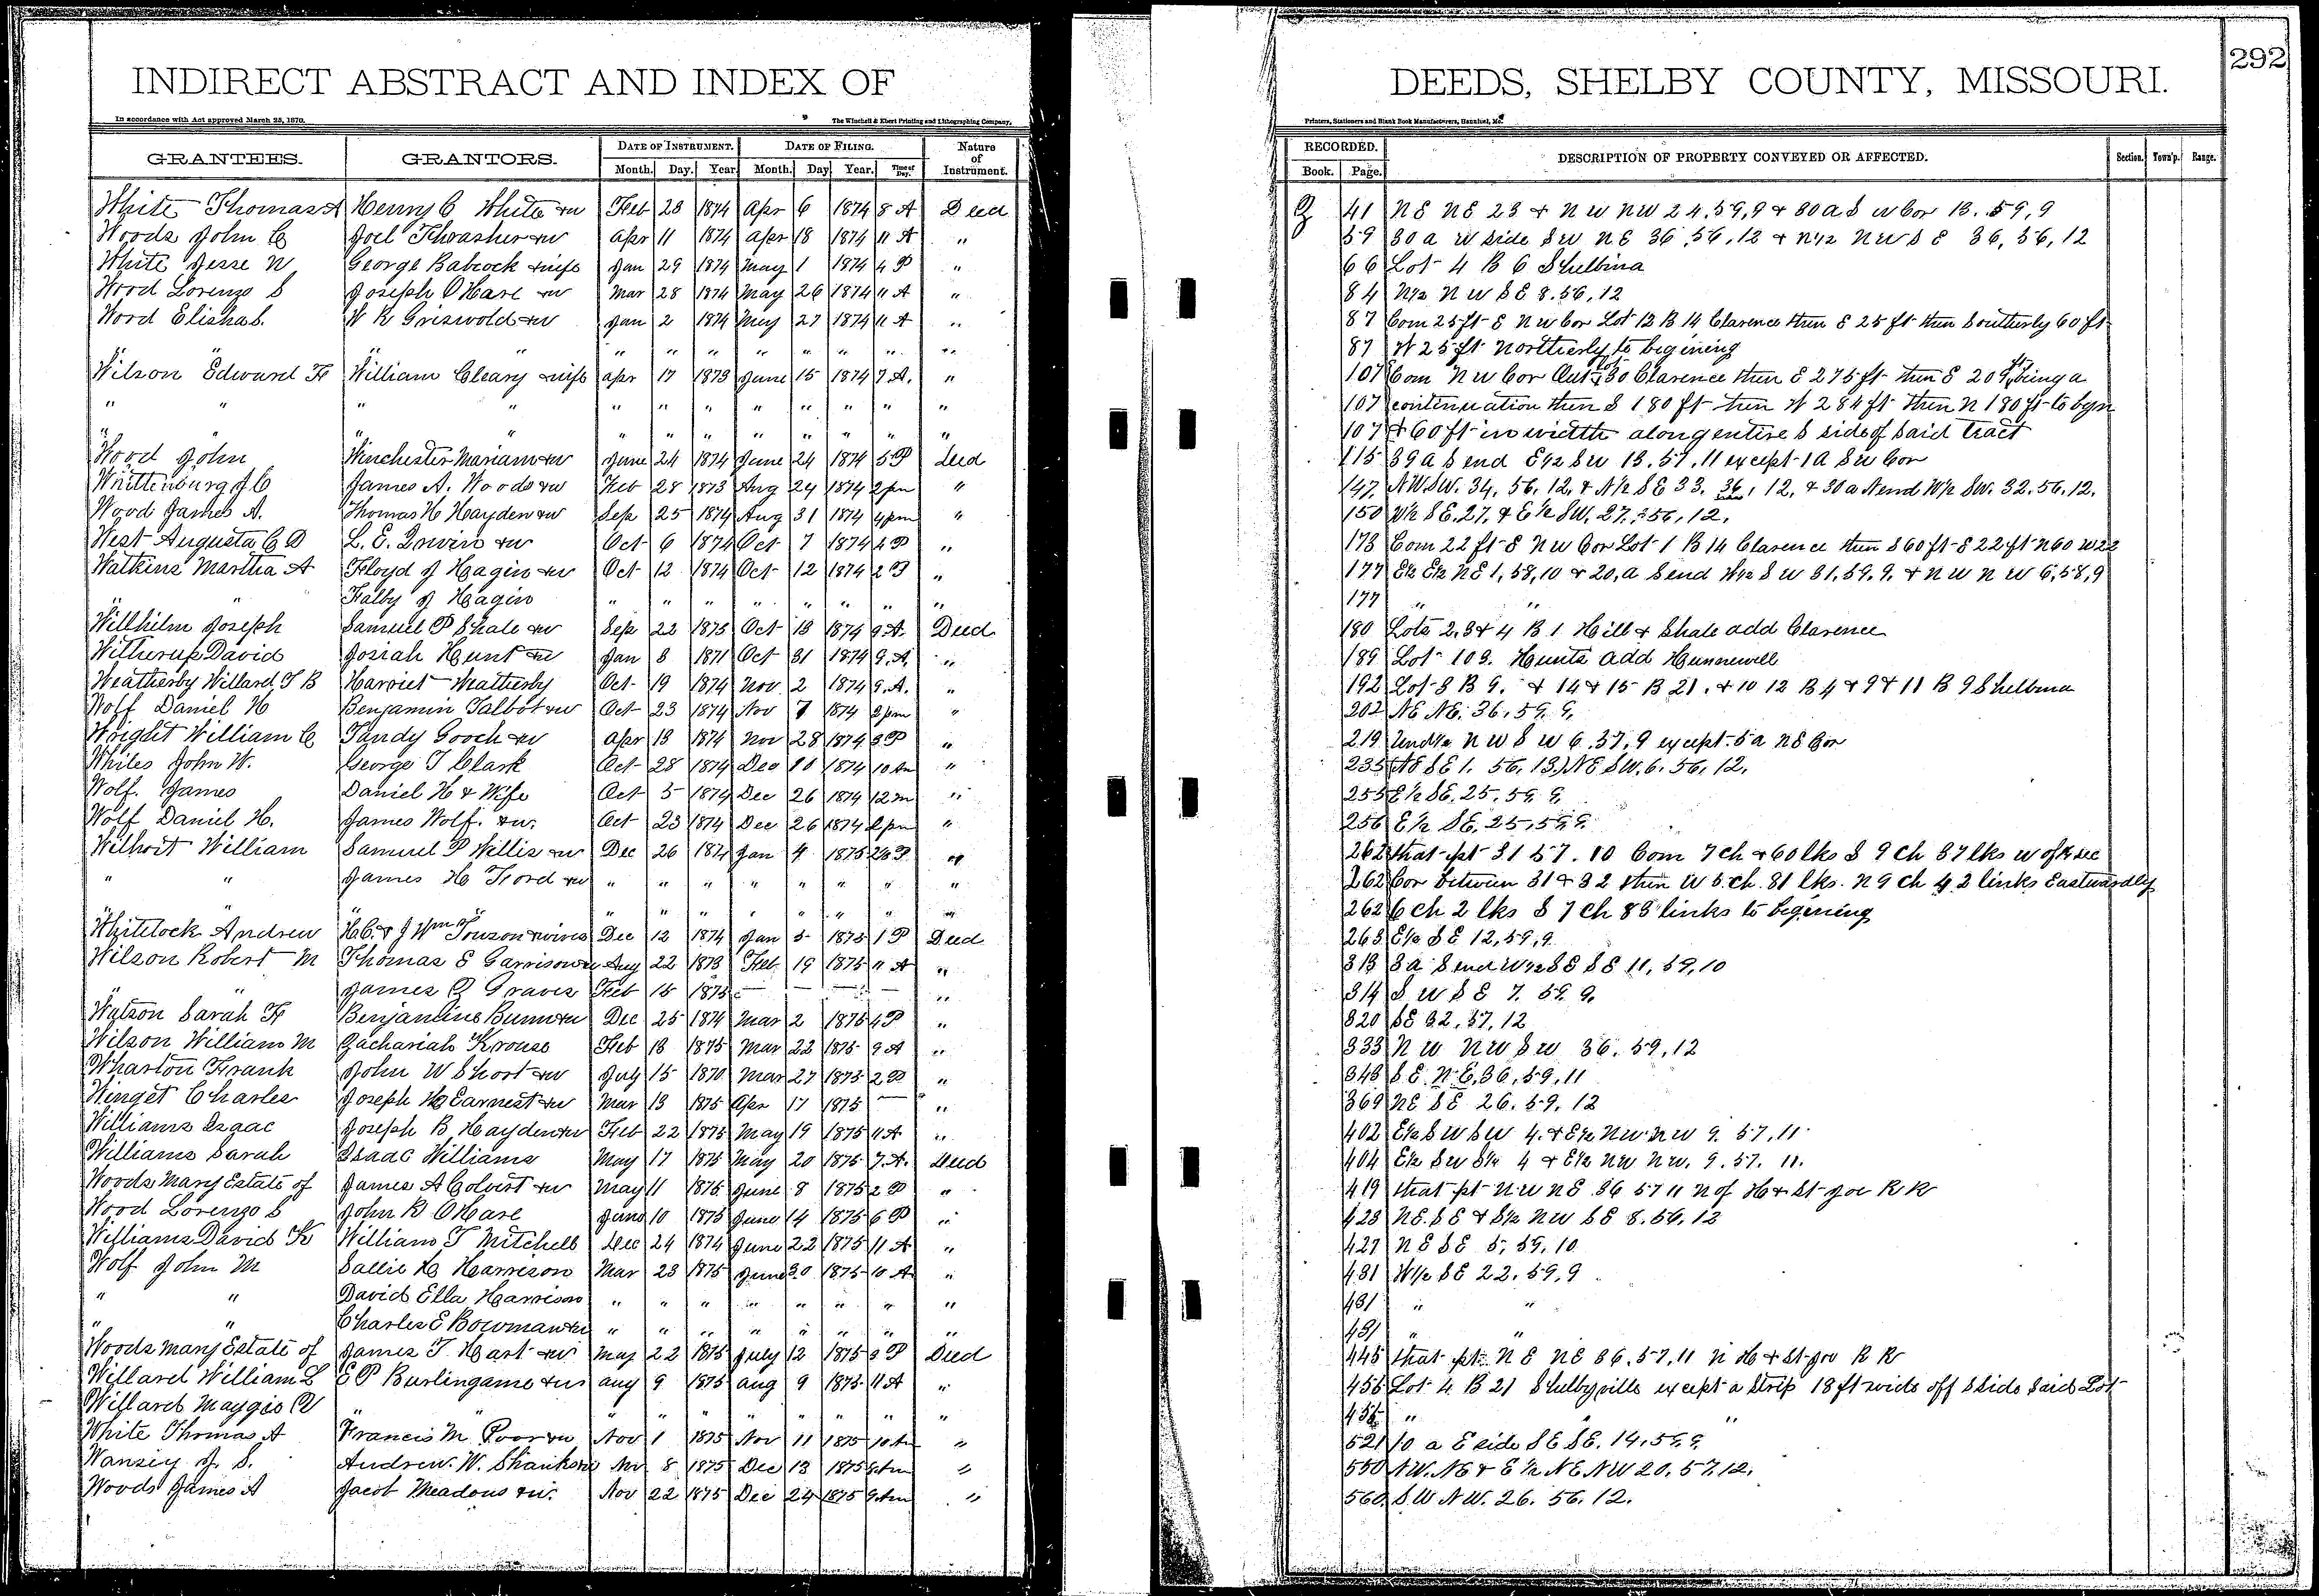 292
INDIRECT ABSTRACT AND INDEX OF DEEDS, SHELBY COUNTY, MISSOURI.
In accordance with Act approved March 25, 1870. The Winchell & Ebert Printing and Lithographing Company, Printers, Stationers and Blank Book Manufacturers, Hannibal, Mo.
GRANTEES. GRANTORS. DATE OF INSTRUMENT. Month. Day. Year. DATE OF FILING. Month. Day. Year. Time of Day. Nature of Instrument. RECORDED. Book. Page. DESCRIPTION OF PROPERTY CONVEYED OR AFFECTED. Section. Town'p. Range.
White Thomas A Henry C White & w Feb 28 1874 Apr 6 1874 8 A Deed 41 NE NE 23 & NW NW 24,59,9 & 30 a S w Cor 13. 59,9
Woods John C Joel Thrasher & w Apr 11 1874 Apr 18 1874 11 A " 59 30 a W side SW NE 36,56,12 & N1/2 NW SE 36,56,12
White Jesse N George Babcock & wife Jan 29 1874 May 1 1874 4 P " 66 Lot 4 B 6 Shelbina
Wood Lorenzo S Joseph O Hare & w Mar 28 1874 May 26 1874 11 A " 84 N1/2 NW SE 8.56,12
Wood Elisha W R Griswold & w Jan 2 1874 May 27 1874 11 A " 87 Com 25 ft E NW Cor Lot 12 B 14 Clarence then E 25 ft then Southerly 60 ft
" " " " " " " " " " " " 87 W 25 ft Northerly to begining
Wilson Edward F William Cleary & wife Apr 17 1873 June 15 1874 7 A. " 107 Com NW Cor Out 30 Clarence then E 275 ft then S 20 ft being a
" " " " " " " " " " " " 107 continuation then S 180 ft then W 284 ft then N 180 ft to begn
" " " " " " " " " " " " 107 & 60 ft in width along entire S side of said tract
Wood John Winchester Mariam & w June 24 1874 June 24 1874 5 P Deed 115 39 a S end E1/2 SW 13.57.11 except 1 a SW Cor
Whittenburg J C James A. Woods & w Feb 28 1873 Aug 24 1874 2 pm " 147 NW SW. 34, 56, 12, & N1/2 SE 33. 36, 12, & 30 a N end W1/2 SW. 32.56,12.
Wood James A. Thomas H Hayden & w Sep 25 1874 Aug 31 1874 4 pm " 150 W1/2 SE. 27. & E1/2 SW. 27. 56, 12.
West Augusta C D L. E. Irwin & w Oct 6 1874 Oct 7 1874 4 P " 173 Com 22 ft E NW Cor Lot 1 B 14 Clarence then S 60 ft E 22 ft N 60 W 22
Watkins Martha A Floyd J Hagin & w Oct 12 1874 Oct 12 1874 2 P " 177 E1/2 E1/2 NE 1, 58,10 & 20 a S end W1/2 SW 31.59.9. & NW NW 6,58,9
" " Falby J Hagin " " " " " " " " 177 " "
Willhilm Joseph Samuel P Shale & w Sep 22 1873 Oct 13 1874 9 A. Deed 180 Lots 2,3 & 4 B 1 Hill & Shale add Clarence
Witherup David Josiah Hunt & w Jan 3 1871 Oct 31 1874 9 A. " 189 Lot 103. Hunts add Hunnewell
Weatherby Willard T B Harriet Weatherby Oct 19 1874 Nov 2 1874 9. A. " 192 Lot 8 B 9. & 14 & 15 B 21. & 10 12 B 4 & 9 & 11 B 9 Shelbina
Wolf Daniel H Benjamin Talbot & w Oct 23 1874 Nov 7 1874 2 pm " 202 NE NE. 36, 59, 9,
Wright William C Tandy Gooch & w Apr 13 1874 Nov 28 1874 3 P " 219 Und 1/2 NW SW 6.57,9 except 5 a NE Cor
Whiles John W. George T Clark Oct 28 1874 Dec 10 1874 10 Am " 235 (NE SE 1. 56, 13) NE SW. 6. 56, 12.
Wolf. James Daniel H & Wife Oct 5 1874 Dec 26 1874 12 m " 255 E1/2 SE. 25. 59. 9,
Wolf Daniel H. James Wolf. & w. Oct 23 1874 Dec 26 1874 2 pm " 256 E1/2 SE. 25, 59, 9.
Wilhoit William Samuel P Willis & w Dec 26 1874 Jan 4 1875 P. " 262 that pt 31 57. 10 Com 7 ch & 60 lks S 9 Ch 37 lks W of 1/4 sec
" " James H Ford & w " " " " " " " " 262 Cor between 31 & 32 then W 5. ch. 81 lks. N 9 ch 42 links Eastwardly
" " " " " " " " " " " 262 6 ch 2 lks S 7 Ch 83 links to begining
Whitelock Andrew H.C. & J Wm Towson & wives Dec 12 1874 Jan 5 1875 1 P Deed 263 E1/2 SE 12,59,9
Wilson Robert M Thomas E Garrison Aug 22 1873 Feb 19 1875 11 A " 313 3 a S end W1/2 SE SE 11, 59,10
" " James Q Graves Feb 15 1875 — — — — " 314 SW SE 7. 59. 9.
Watson Sarah F Benjamine Bunn & w Dec 25 1874 Mar 2 1875 4 P " 320 SE 32, 57, 12
Wilson William M Zachariah Krouse Feb 13 1875 Mar 22 1875 9 A " 333 NW NW SW 36. 59, 12
Wharton Frank John W Short & w July 15 1870 Mar 27 1875 2 P " 343 SE. NE. 36, 59, 11
Winget Charles Joseph H Earnest & w Mar 13 1875 Apr 17 1875 — " 369 NE SE 26. 59. 12
Williams Isaac Joseph B Hayden & w Feb 22 1875 May 19 1875 11 A " 402 E1/2 SW SW 4. & E1/2 NW NW 9. 57, 11
Williams Sarah Isaac Williams May 17 1875 May 20 1875 7. A. Deed 404 E1/2 SW SW 4 & E1/2 NW NW. 9. 57. 11.
Woods Mary Estate of James A Colvert & w May 11 1875 June 8 1875 2 P " 419 that pt NW NE 36 57 11 N of H & St Joe R R
Wood Lorenzo S John R O Hare June 10 1875 June 14 1875 6 P " 423 NE. SE & S1/2 NW SE 8. 56. 12
Williams David K William T Mitchell Dec 24 1874 June 22 1875 11 A " 427 NE SE 5, 59, 10
Wolf John M Sallie H Harrison Mar 23 1875 June 30 1875 10 A " 431 W1/2 SE 22. 59, 9
" " David Ella Harrison " " " " " " " " 431 " "
" " Charles E Bowman & w " " " " " " " " 431 " "
Woods Mary Estate of James T Hart & w May 22 1875 July 12 1875 3 P Deed 445 that pt. NE NE 36. 57, 11 N H & St Joe R R
Willard William L E P Burlingame & w Aug 9 1875 Aug 9 1875 11 A " 456 Lot 4 B 21 Shelbyville except a Strip 18 ft wide off S side said Lot
Willard Maggie V " " " " " " " " " 456 " " "
White Thomas A Francis M Poor & w Nov 1 1875 Nov 11 1875 10 Am " 521 10 a E side SE SE. 14, 59, 9.
Wansey J. S. Andrew. W. Shanks Nov 8 1875 Dec 13 1875 9 Am " 550 NW. NE & E1/2 NE NW 20. 57. 12.
Woods James A Jacob Meadows & w. Nov 22 1875 Dec 24 1875 9 Am " 560. SW NW. 26. 56. 12.